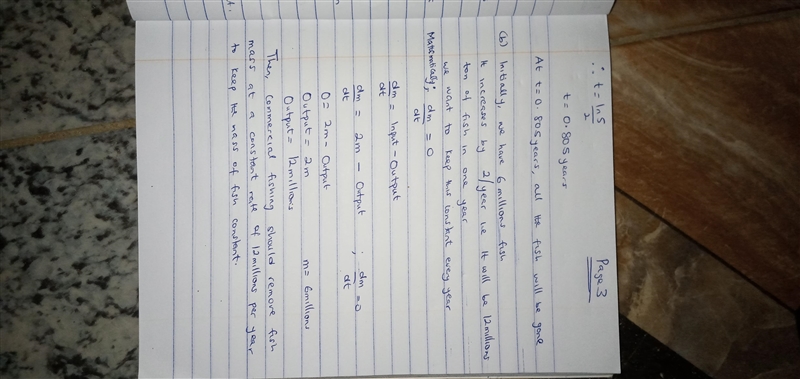 Page 3
∴ t = ln5/2
t = 0.805 years
At t = 0.805 years, all the fish will be gone
(b) Initially, we have 6 millions fish
It increases by 2/year ie It will be 12 millions
ton of fish in one year
we want to keep this constant every year
Mathematically; dm/dt = 0
dm/dt = Input - Output
dm/dt = 2m - Output ; dm/dt = 0
0 = 2m - Output
Output = 2m m = 6 millions
Output = 12 millions
Then, Commercial fishing should remove fish
mass at a constant rate of 12 millions per year
to keep the mass of fish constant.